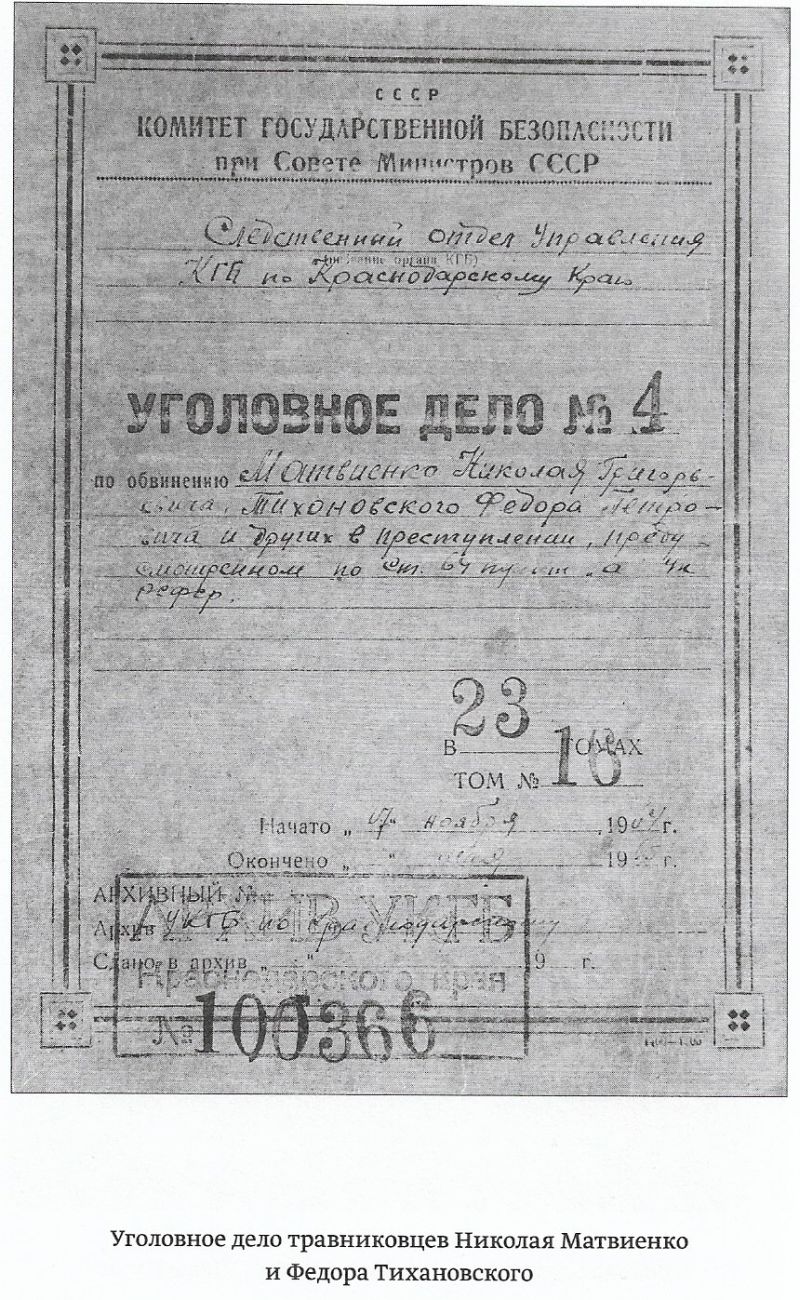 СССР
КОМИТЕТ ГОСУДАРСТВЕННОЙ БЕЗОПАСНОСТИ
при Совете Министров СССР
Следственный отдел Управления
КГБ по Краснодарскому Краю
УГОЛОВНОЕ ДЕЛО № 4
по обвинению Матвиенко Николая Григорь-
евича, Тихоновского Федора Петро-
вича и других в преступлении, преду-
смотренном по ст. 64 пункт "а" УК
РСФСР.
23
В ТОМАХ
ТОМ № 16
Начато „17" ноября 1964 г.
Окончено „ " 19 г.
АРХИВНЫЙ №
Архив УКГБ по Краснодарскому
Сдано в архив „ " 19 г.
АРХИВ УКГБ
Краснодарского края
№ 100366
Уголовное дело травниковцев Николая Матвиенко
и Федора Тихановского